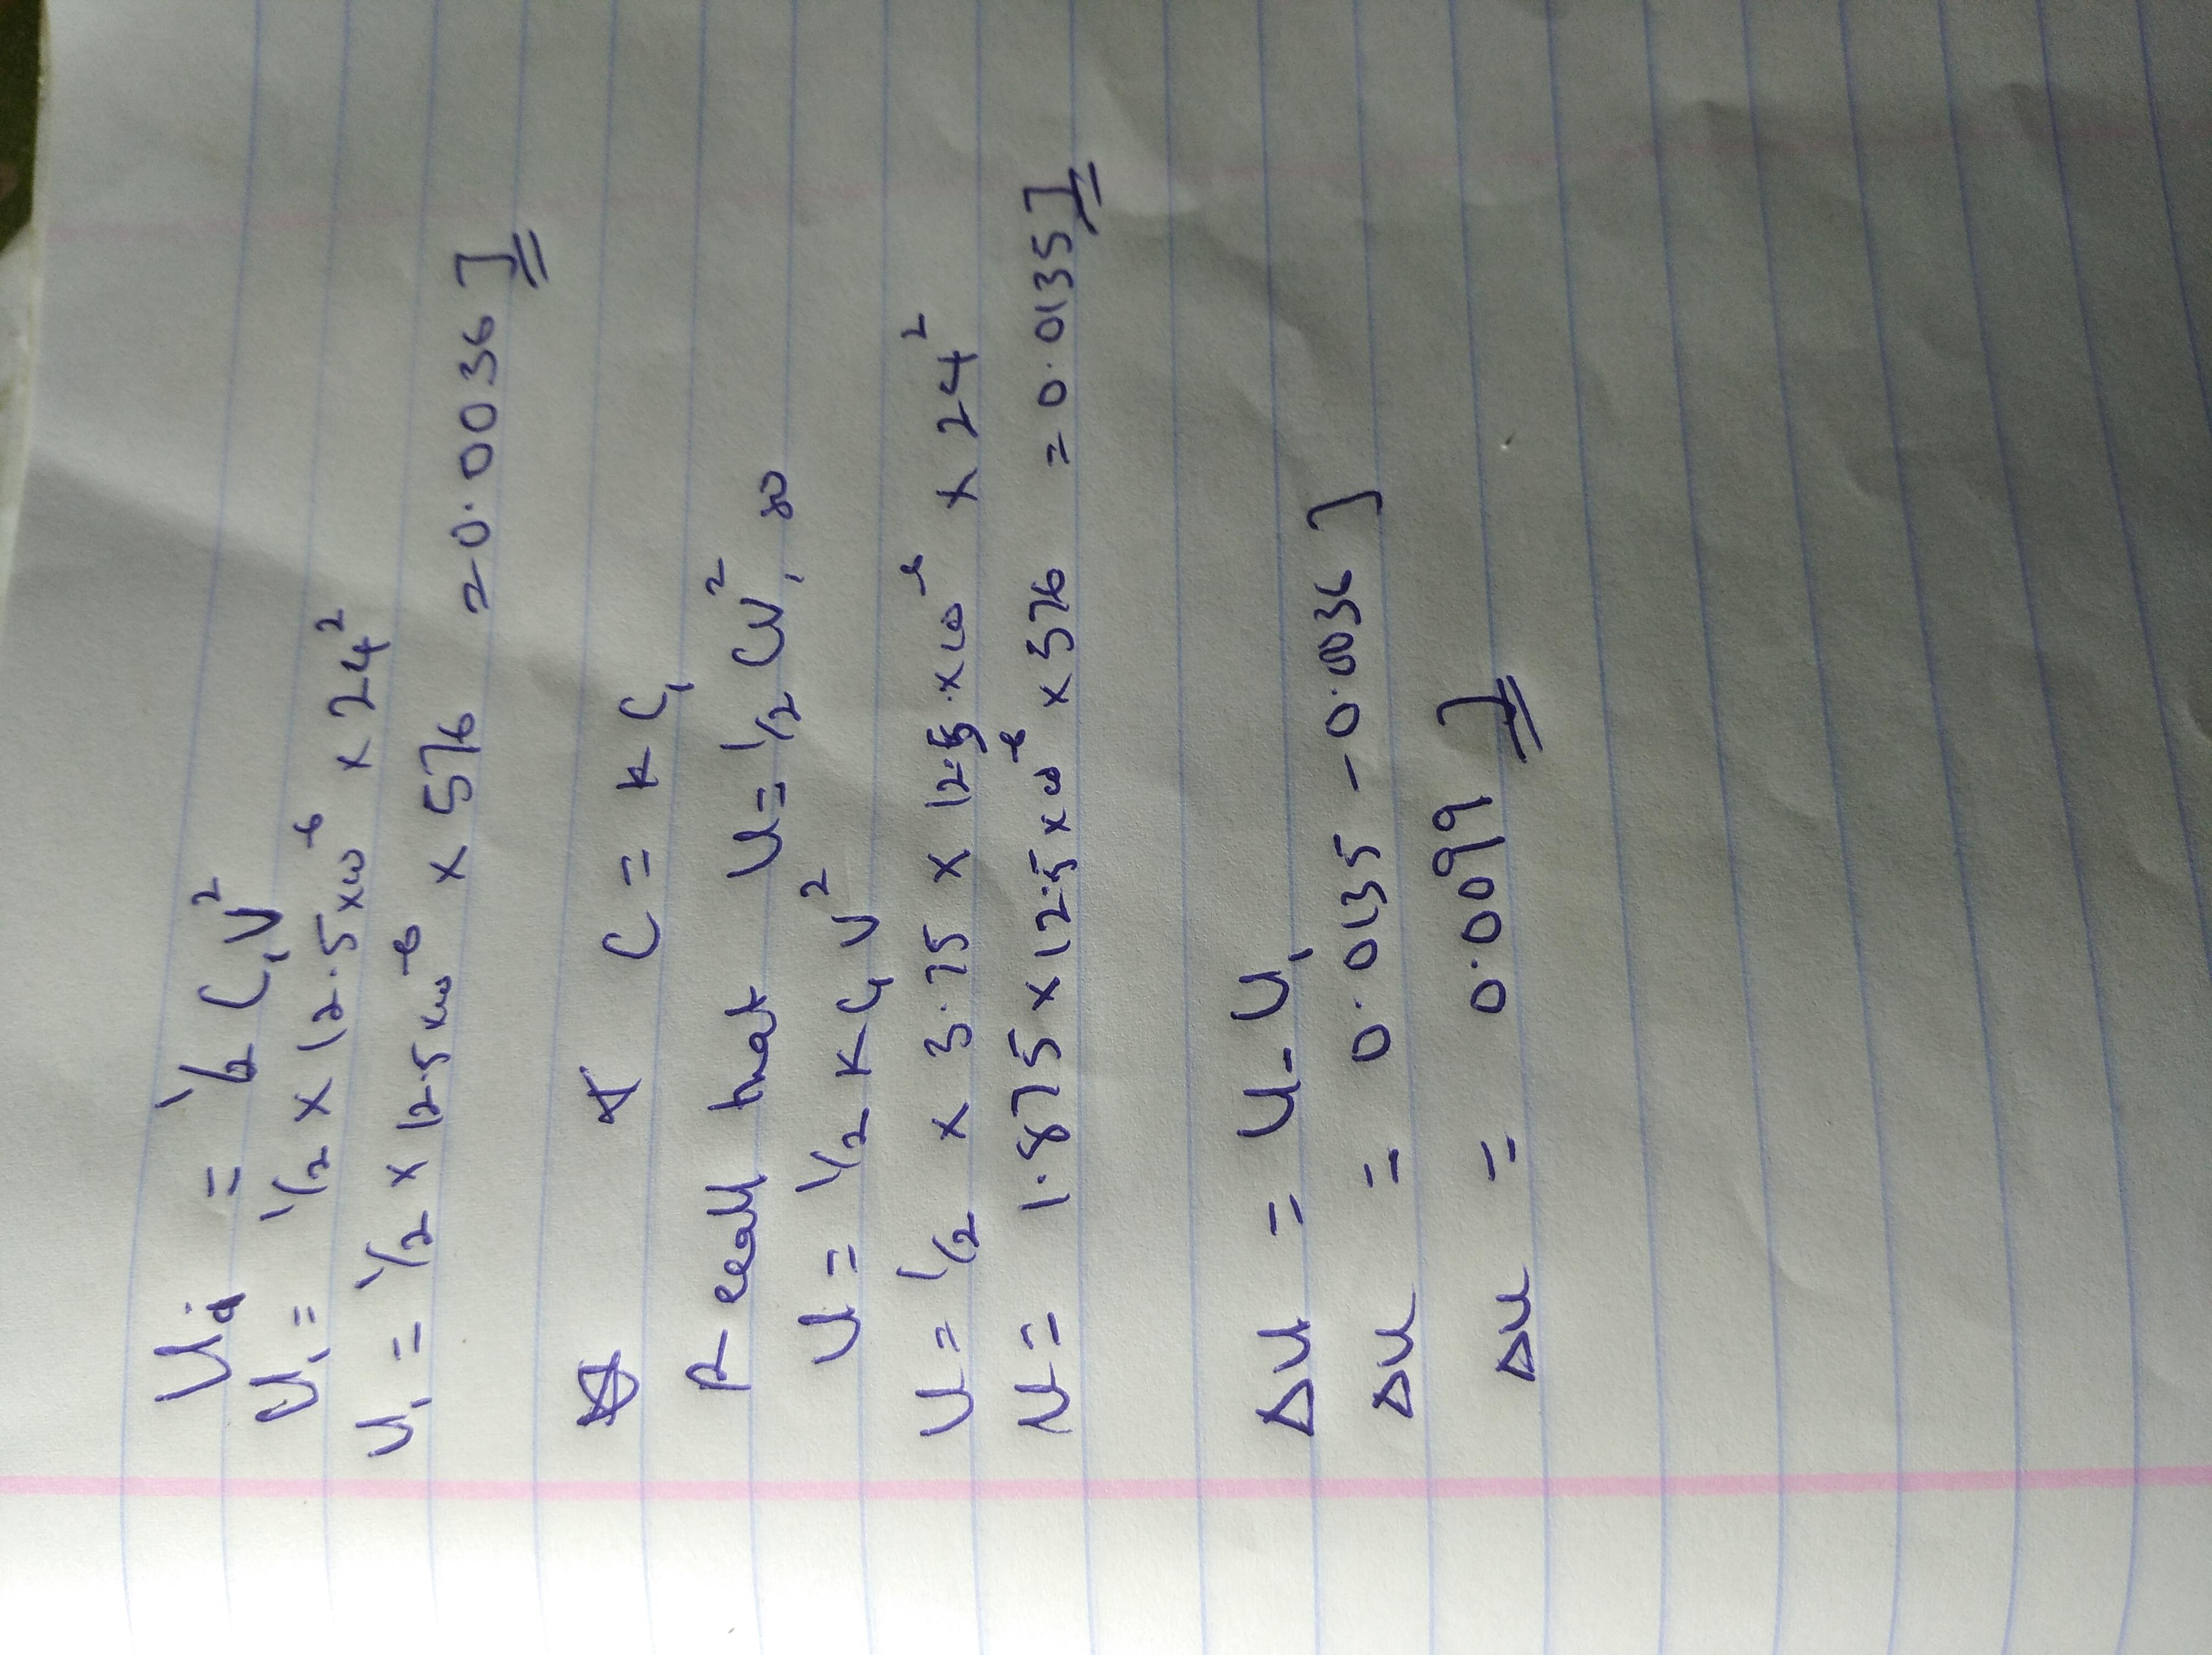 Ui = 1/2 C₁V²
U₁ = 1/2 × 12.5×10⁻⁶ × 24²
U₁ = 1/2 × 12.5×10⁻⁶ × 576 = 0.0036 J
C = KC₁
Recall that U = 1/2 CV², so
U = 1/2 KC₁V²
U = 1/2 × 3.75 × 12.5×10⁻⁶ × 24²
U = 1.875 × 12.5×10⁻⁶ × 576 = 0.0135 J
ΔU = U - U₁
ΔU = 0.0135 - 0.0036 J
ΔU = 0.0099 J